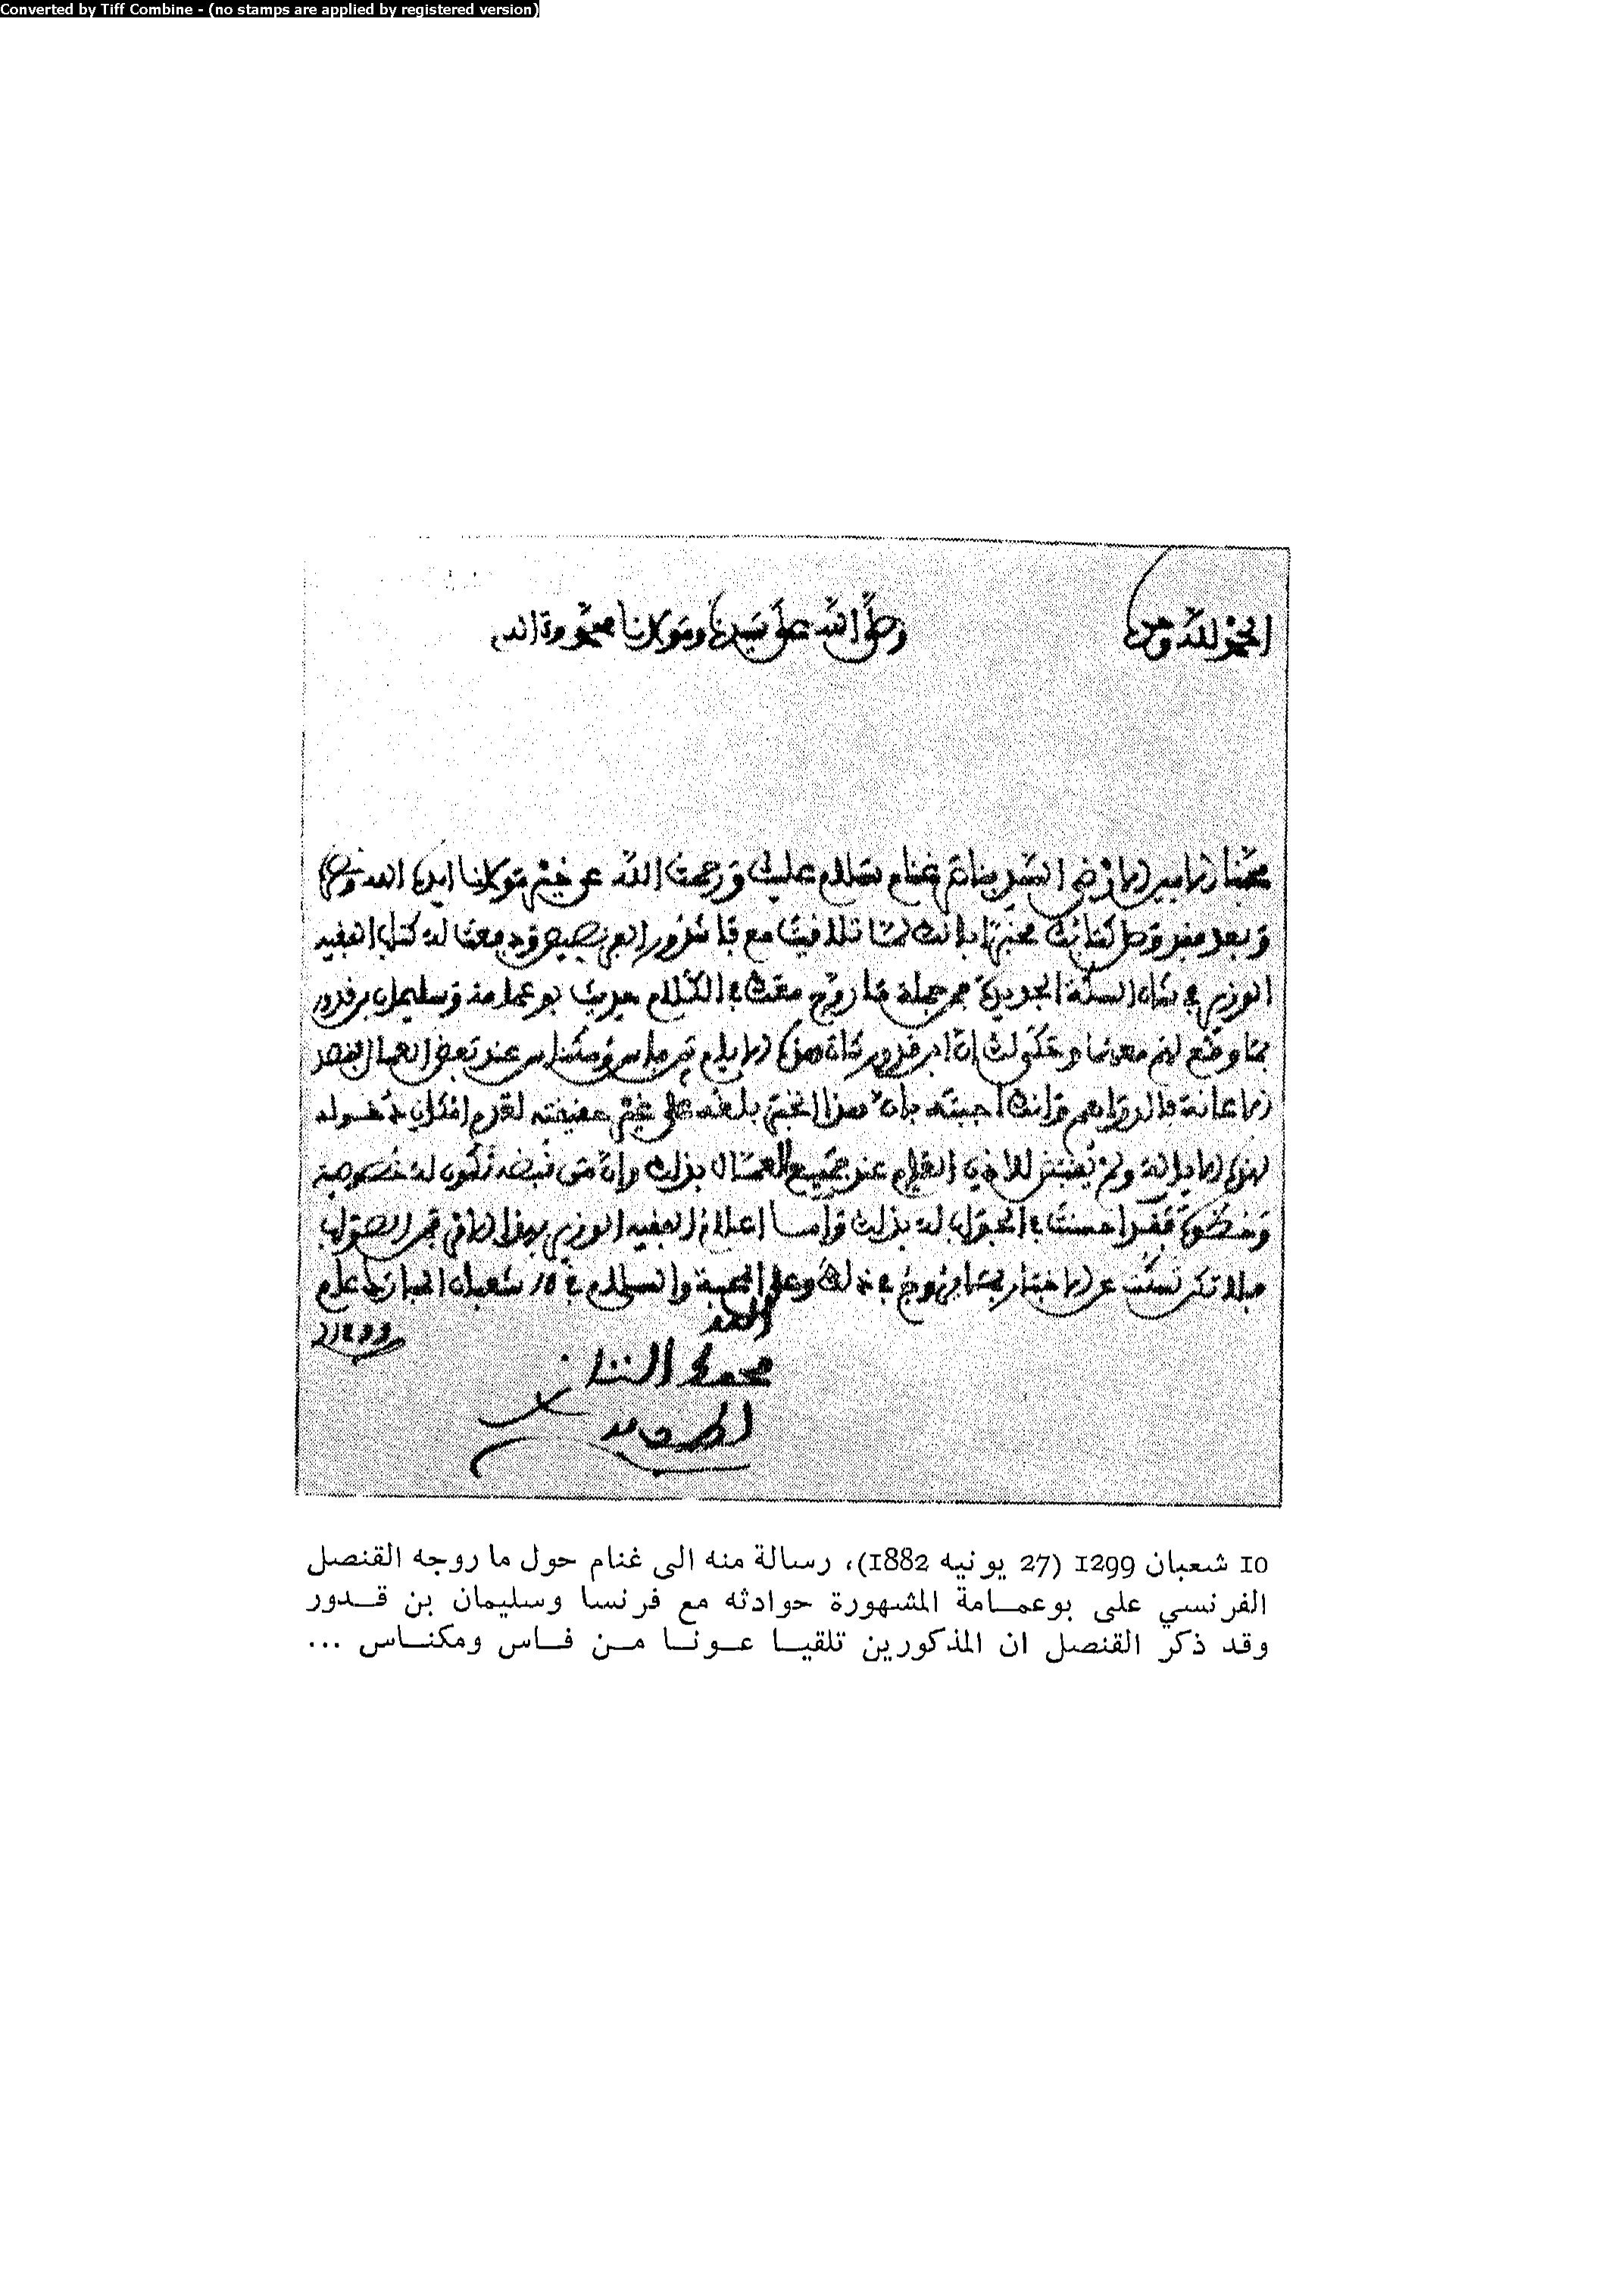 Converted by Tiff Combine - (no stamps are applied by registered version)
الحمد لله وحده
وصلى الله على سيدنا ومولانا محمد وءاله
محبنا الامين الارضى السيد بناصر غنام سلام عليك ورحمت الله عن خير مولانا ايده الله ونصره
وبعد فقد وصل كتابك مخبرا بانك لما تلاقيت مع باشدور الفرنصيص ودفعت له كتاب الفقيه
الوزير في شان السكة الجديدة فمن جملة ما روج معك في الكلام حديث بوعمامة وسليمان بن قدور
بما وقع لهم معهما وحكى لك ان ابن قدور كان هذه الايام بفاس ومكناس عند بعض العمال بقصد
الاعانة بالدراهم وانك اجبته بان هذا الخبر بلغه على غير حقيقته لعدم امكان دخوله
لهذه الايالة ولم
وحظوة فقد احسنت في الجواب له بذلك واما اعلام الفقيه الوزير بهذا فمن الصواب
فلا تكن تسكت عن الاخبار بما يروج في ذلك وعلى المحبة والسلام في 10 شعبان المبارك عام
1299
محمد
لطف الله به
10 شعبان 1299 (27 يونيه 1882)، رسالة منه الى غنام حول ما روجه القنصل
الفرنسي على بوعمامة المشهورة حوادثه مع فرنسا وسليمان بن قدور
وقد ذكر القنصل ان المذكورين تلقيا عونا من فاس ومكناس ...